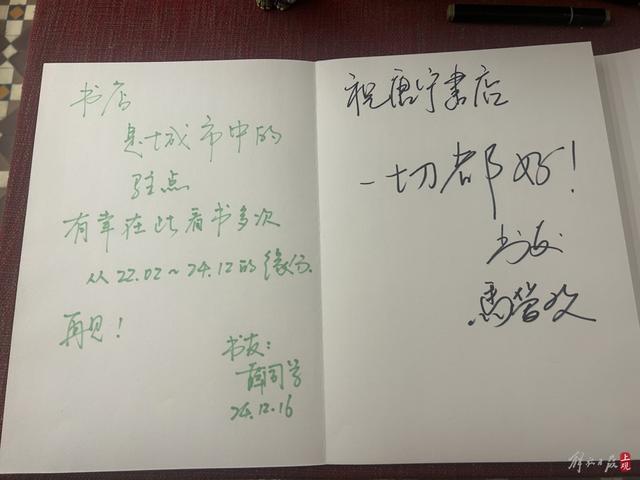 书店
是城市中的
驻点
有幸在此看书多次
从22.02~24.12的缘分.
再见！
书友：
薛同学
24.12.16
祝唐宁書店
一切都好！
书友
馬
解放日报 上观